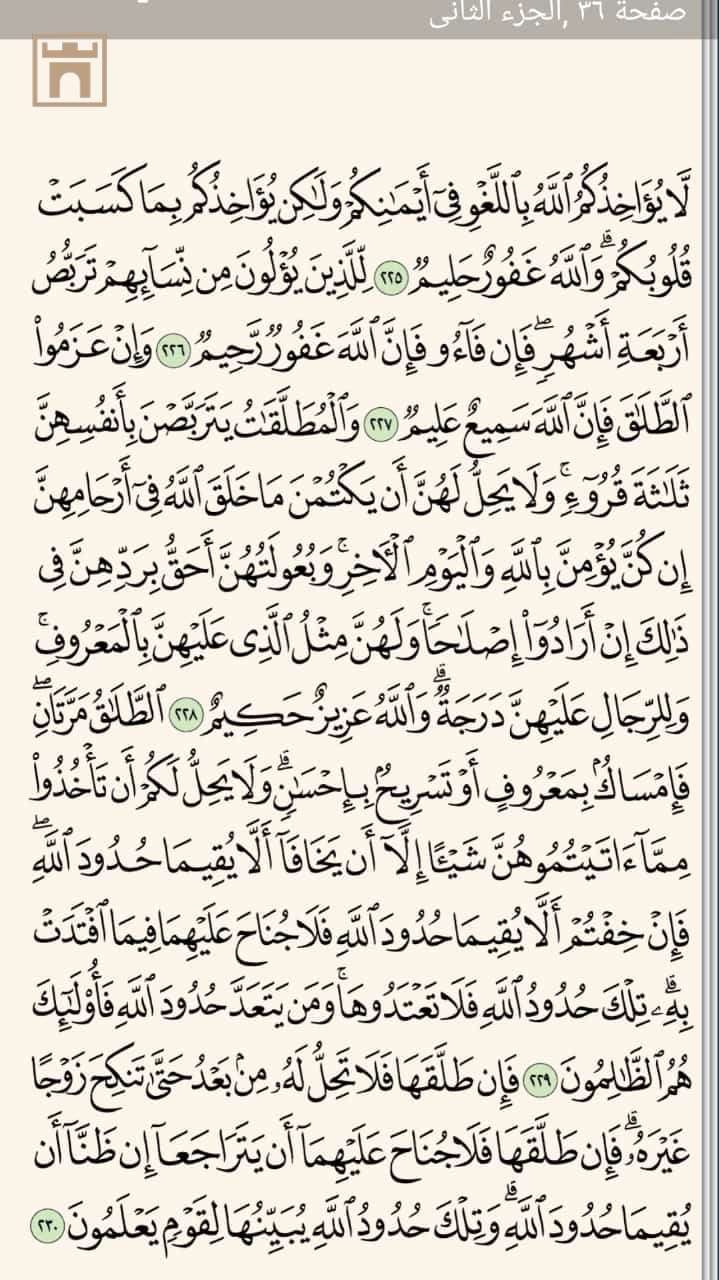 صفحة ٣٦ ,الجزء الثانى
لَّا يُؤَاخِذُكُمُ ٱللَّهُ بِٱللَّغْوِ فِىٓ أَيْمَٰنِكُمْ وَلَٰكِن يُؤَاخِذُكُم بِمَا كَسَبَتْ
قُلُوبُكُمْ ۗ وَٱللَّهُ غَفُورٌ حَلِيمٌ ٢٢٥ لِّلَّذِينَ يُؤْلُونَ مِن نِّسَآئِهِمْ تَرَبُّصُ
أَرْبَعَةِ أَشْهُرٍ ۖ فَإِن فَآءُو فَإِنَّ ٱللَّهَ غَفُورٌ رَّحِيمٌ ٢٢٦ وَإِنْ عَزَمُوا۟
ٱلطَّلَٰقَ فَإِنَّ ٱللَّهَ سَمِيعٌ عَلِيمٌ ٢٢٧ وَٱلْمُطَلَّقَٰتُ يَتَرَبَّصْنَ بِأَنفُسِهِنَّ
ثَلَٰثَةَ قُرُوٓءٍ ۚ وَلَا يَحِلُّ لَهُنَّ أَن يَكْتُمْنَ مَا خَلَقَ ٱللَّهُ فِىٓ أَرْحَامِهِنَّ
إِن كُنَّ يُؤْمِنَّ بِٱللَّهِ وَٱلْيَوْمِ ٱلْءَاخِرِ ۚ وَبُعُولَتُهُنَّ أَحَقُّ بِرَدِّهِنَّ فِى
ذَٰلِكَ إِنْ أَرَادُوٓا۟ إِصْلَٰحًا ۚ وَلَهُنَّ مِثْلُ ٱلَّذِى عَلَيْهِنَّ بِٱلْمَعْرُوفِ ۚ
وَلِلرِّجَالِ عَلَيْهِنَّ دَرَجَةٌ ۗ وَٱللَّهُ عَزِيزٌ حَكِيمٌ ٢٢٨ ٱلطَّلَٰقُ مَرَّتَانِ ۖ
فَإِمْسَاكٌۢ بِمَعْرُوفٍ أَوْ تَسْرِيحٌۢ بِإِحْسَٰنٍ ۗ وَلَا يَحِلُّ لَكُمْ أَن تَأْخُذُوا۟
مِمَّآ ءَاتَيْتُمُوهُنَّ شَيْـًٔا إِلَّآ أَن يَخَافَآ أَلَّا يُقِيمَا حُدُودَ ٱللَّهِ ۖ
فَإِنْ خِفْتُمْ أَلَّا يُقِيمَا حُدُودَ ٱللَّهِ فَلَا جُنَاحَ عَلَيْهِمَا فِيمَا ٱفْتَدَتْ
بِهِۦ ۗ تِلْكَ حُدُودُ ٱللَّهِ فَلَا تَعْتَدُوهَا ۚ وَمَن يَتَعَدَّ حُدُودَ ٱللَّهِ فَأُو۟لَٰٓئِكَ
هُمُ ٱلظَّٰلِمُونَ ٢٢٩ فَإِن طَلَّقَهَا فَلَا تَحِلُّ لَهُۥ مِنۢ بَعْدُ حَتَّىٰ تَنكِحَ زَوْجًا
غَيْرَهُۥ ۗ فَإِن طَلَّقَهَا فَلَا جُنَاحَ عَلَيْهِمَآ أَن يَتَرَاجَعَآ إِن ظَنَّآ أَن
يُقِيمَا حُدُودَ ٱللَّهِ ۗ وَتِلْكَ حُدُودُ ٱللَّهِ يُبَيِّنُهَا لِقَوْمٍ يَعْلَمُونَ ٢٣٠